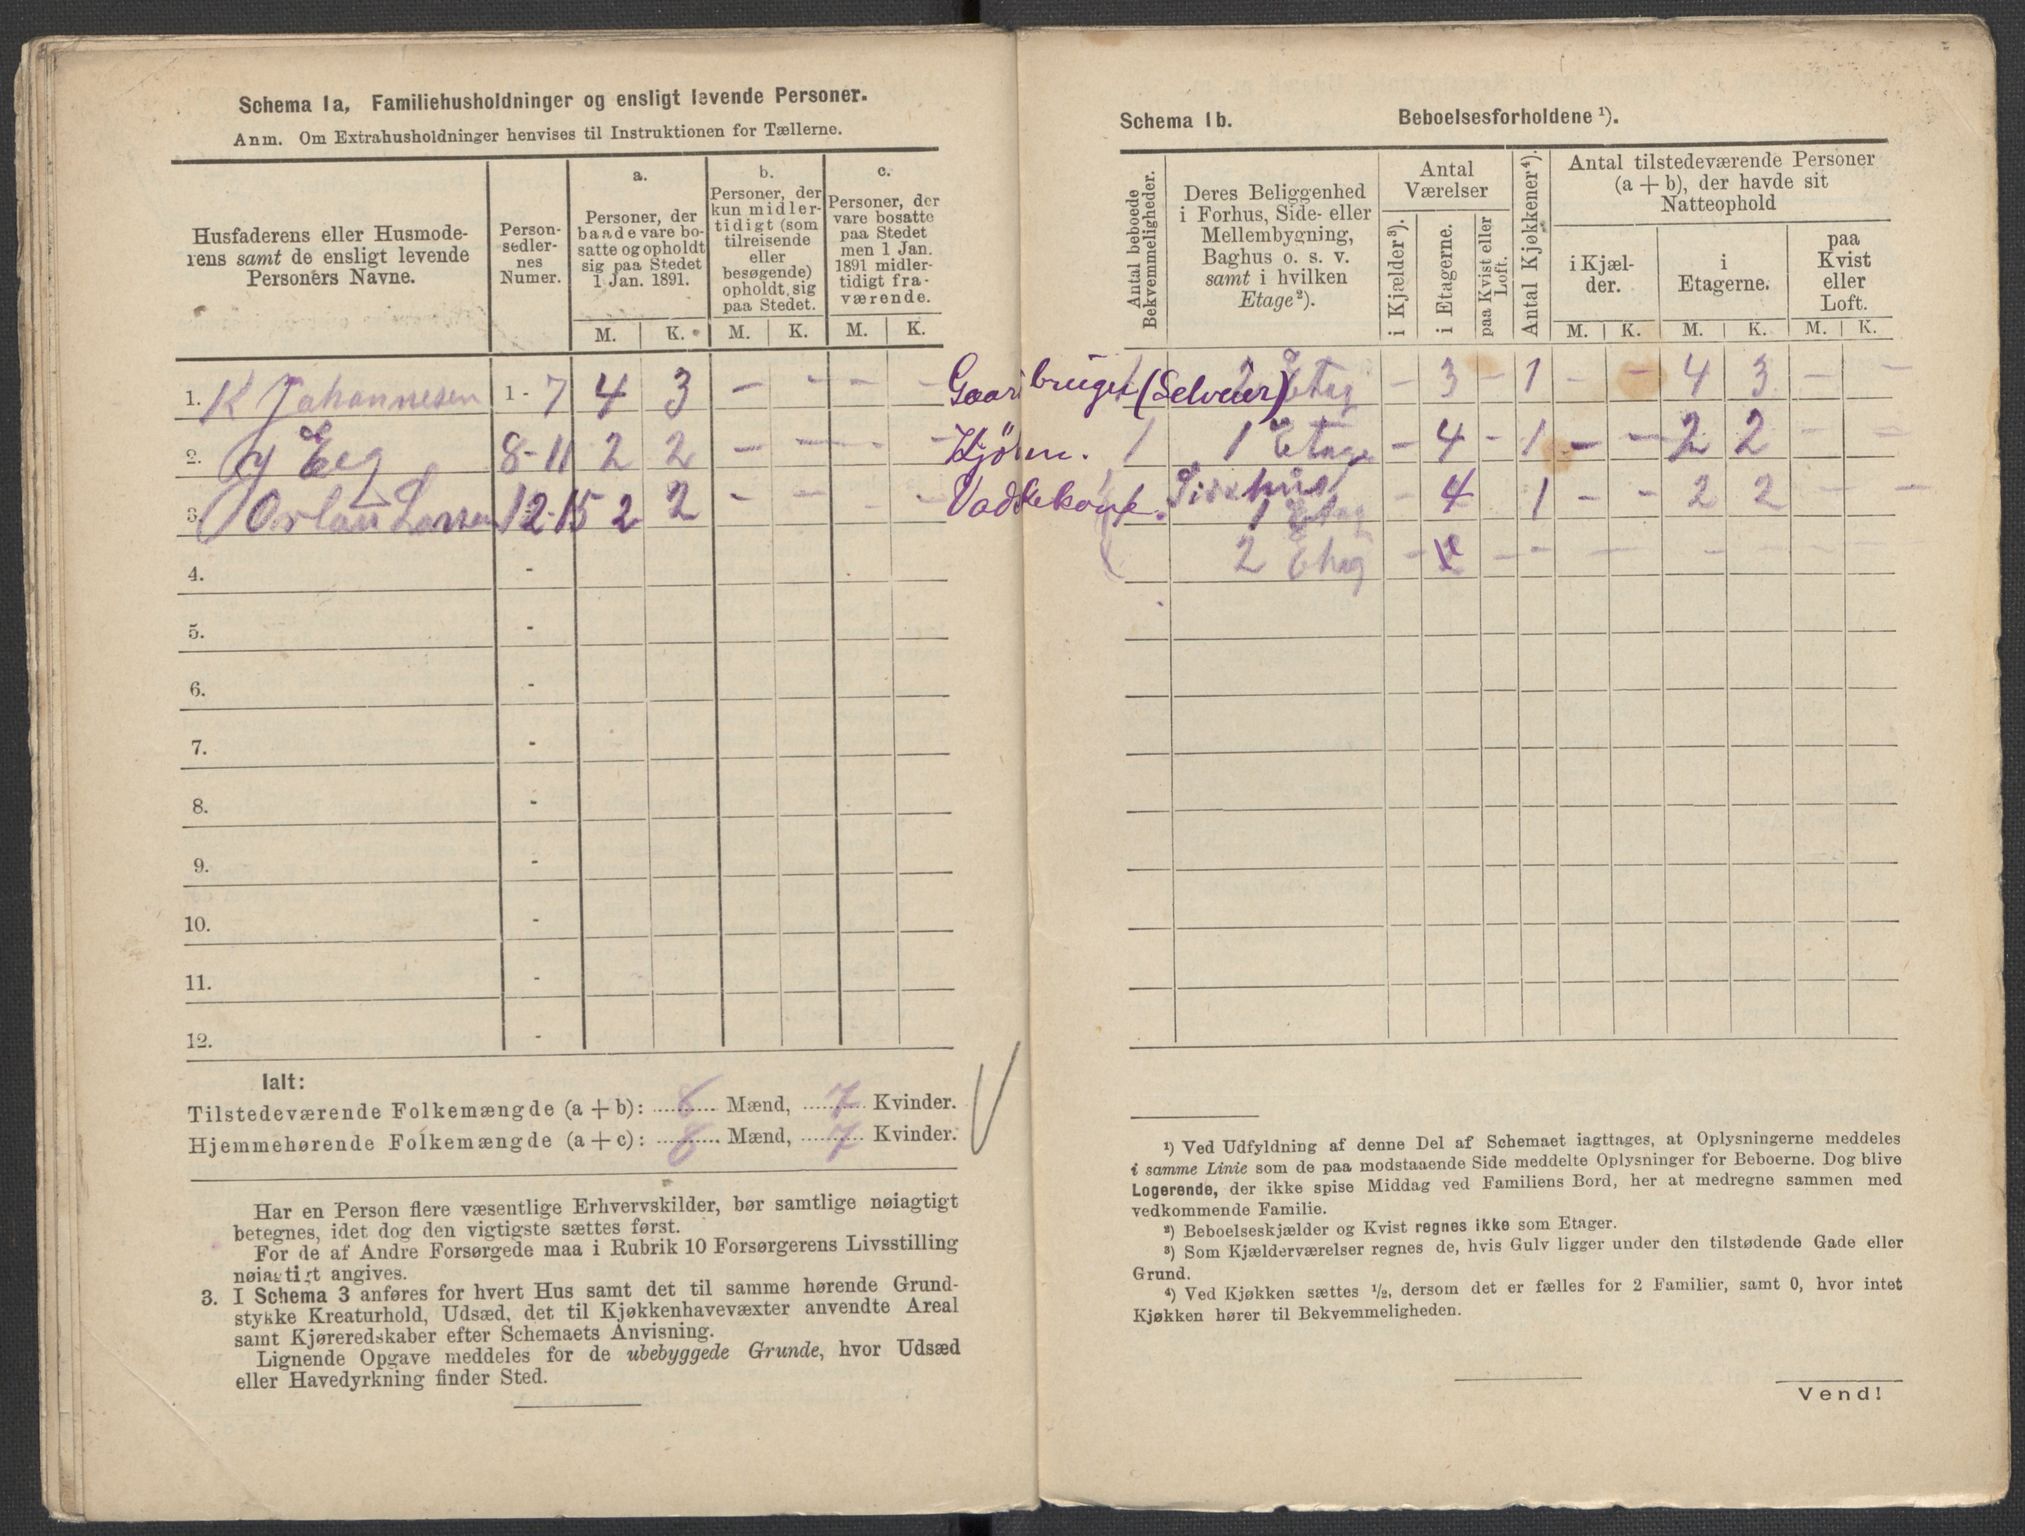 Schema 1a, Familiehusholdninger og ensligt levende Personer.
Anm. Om Extrahusholdninger henvises til Instruktionen for Tællerne.
Husfaderens eller Husmoderens samt de ensligt levende Personers Navne.
Personsedlernes Numer.
a.
Personer, der baade vare bosatte og opholdt sig paa Stedet 1 Jan. 1891.
M. K.
b.
Personer, der kun midlertidigt (som tilreisende eller besøgende) opholdt sig paa Stedet.
M. K.
c.
Personer, der vare bosatte paa Stedet men 1 Jan. 1891 midlertidigt fraværende.
M. K.
1. K Johannesen 1 - 7 4 3 - - - -
2. Eeg 8 - 11 2 2 - - - -
3. Larsen 12 - 15 2 2 - - - -
4. -
5. -
6. -
7. -
8. -
9. -
10. -
11. -
12. -
Ialt:
Tilstedeværende Folkemængde (a + b): 8 Mænd, 7 Kvinder.
Hjemmehørende Folkemængde (a + c): 8 Mænd, 7 Kvinder.
Har en Person flere væsentlige Erhvervskilder, bør samtlige nøiagtigt
betegnes, idet dog den vigtigste sættes først.
For de af Andre Forsørgede maa i Rubrik 10 Forsørgerens Livsstilling
nøiagtigt angives.
3. I Schema 3 anføres for hvert Hus samt det til samme hørende Grund-
stykke Kreaturhold, Udsæd, det til Kjøkkenhavevæxter anvendte Areal
samt Kjøreredskaber efter Schemaets Anvisning.
Lignende Opgave meddeles for de ubebyggede Grunde, hvor Udsæd
eller Havedyrkning finder Sted.
Schema 1b. Beboelsesforholdene ¹).
Antal beboede Bekvemmeligheder.
Deres Beliggenhed i Forhus, Side- eller Mellembygning, Baghus o. s. v. samt i hvilken Etage ²).
Antal Værelser
i Kjælder ³).
i Etagerne.
paa Kvist eller Loft.
Antal Kjøkkener ⁴).
Antal tilstedeværende Personer (a + b), der havde sit Natteophold
i Kjælder.
M. K.
i Etagerne.
M. K.
paa Kvist eller Loft.
M. K.
Gaardbruger (Selveier) 1 2 Etag - 3 - 1 - - 4 3 - -
1 1 Etage - 4 - 1 - - 2 2 - -
Vaskekone. 1 Etag - 4 1 - - 2 2 - -
2 Etag - - - - - - - - -
¹) Ved Udfyldning af denne Del af Schemaet iagttages, at Oplysningerne meddeles
i samme Linie som de paa modstaaende Side meddelte Oplysninger for Beboerne. Dog blive
Logerende, der ikke spise Middag ved Familiens Bord, her at medregne sammen med
vedkommende Familie.
²) Beboelseskjælder og Kvist regnes ikke som Etager.
³) Som Kjælderværelser regnes de, hvis Gulv ligger under den tilstødende Gade eller
Grund.
⁴) Ved Kjøkken sættes ½, dersom det er fælles for 2 Familier, samt 0, hvor intet
Kjøkken hører til Bekvemmeligheden.
Vend!